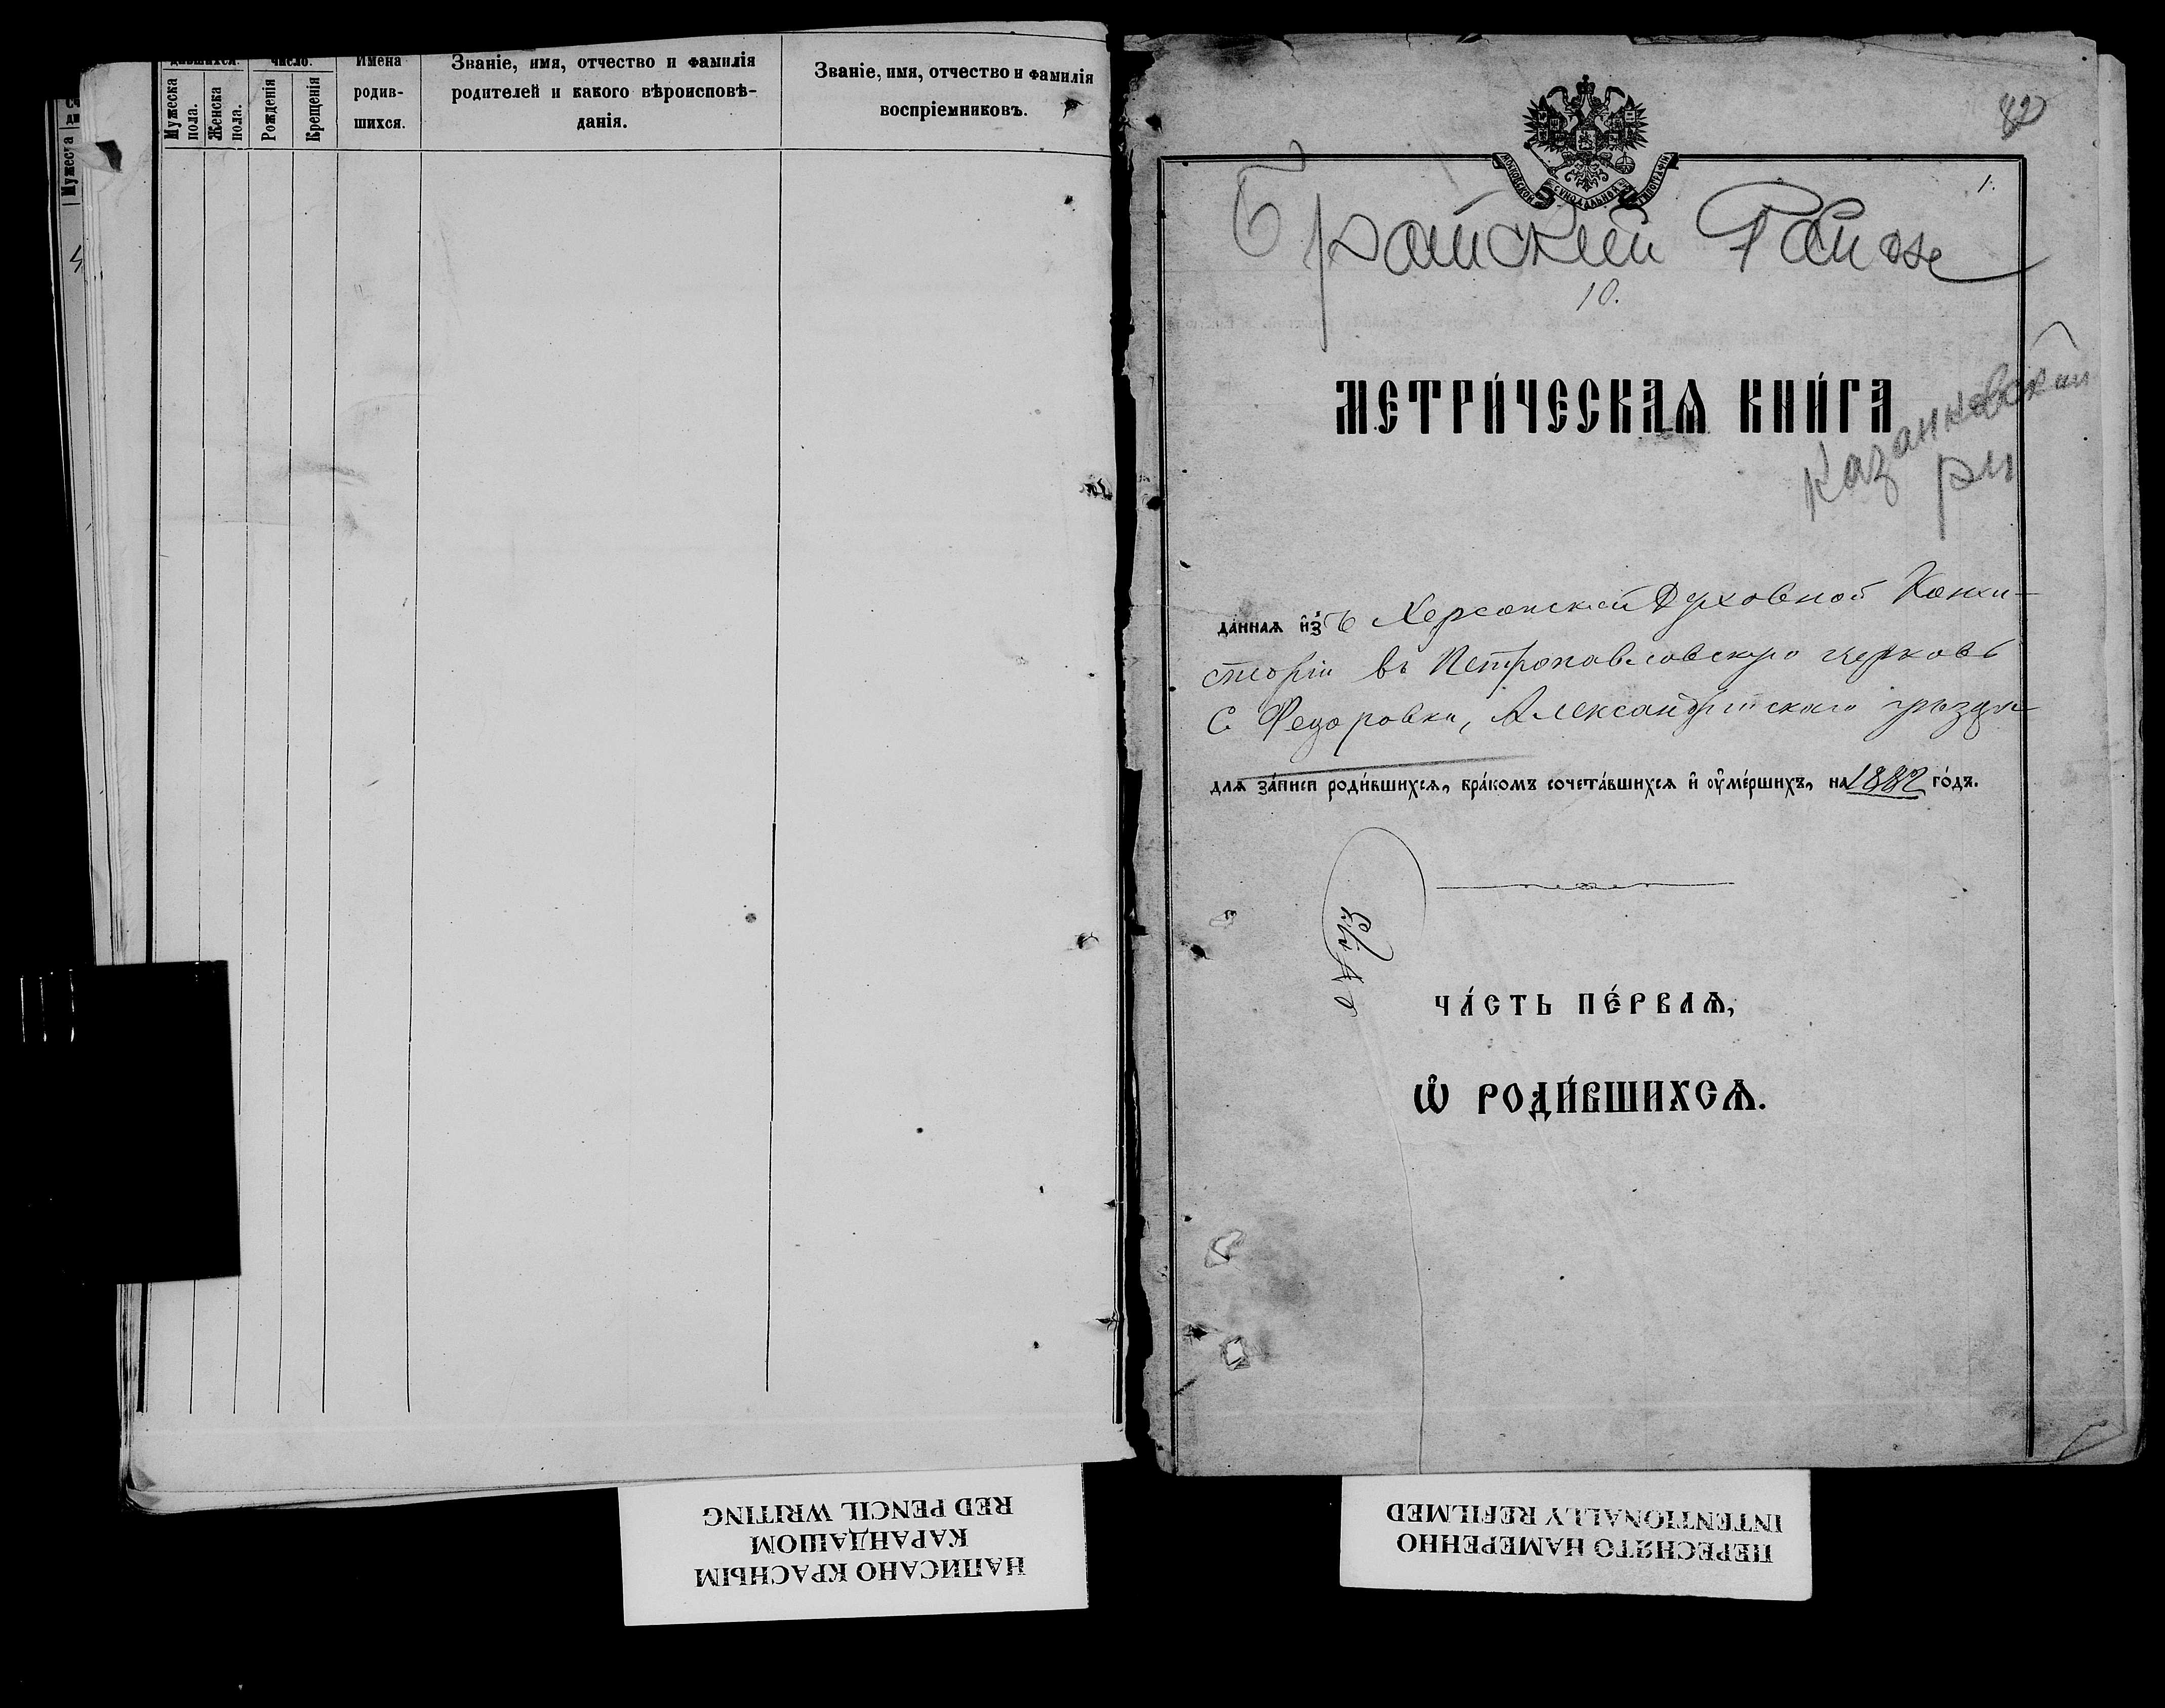 дившихся.
Мужеска пола.
Женска пола.
число.
Рожденія
Крещенія
Имена
родив-
шихся.
Званіе, имя, отчество и фамилія
родителей и какого вѣроисповѣ-
данія.
Званіе, имя, отчество и фамилія
воспріемниковъ.
Мужеска
МОСКОВСКОЙ СУНОДАЛЬНОЙ ТИПОГРАФІИ
82
1.
10.
МЕТРИ́ЧЕСКАѦ КНИ́ГА
Казанковский
рн
да́ннаѧ и҆зъ Херсонской Духовной Конси-
сторіи въ Петропавловскую церковь
С. Федоровки, Александрійскаго уѣзда
длѧ за́писи роди́вшихсѧ, бра́комъ сочета́вшихсѧ и҆ оу҆ме́ршихъ, на 1882 го́дъ.
ЧА́СТЬ ПЕ́РВАѦ,
Ѡ҆ РОДИ́ВШИХСѦ.
НАПИСАНО КРАСНЫМ
КАРАНДАШОМ
RED PENCIL WRITING
ПЕРЕСНЯТО НАМЕРЕННО
INTENTIONALLY REFILMED